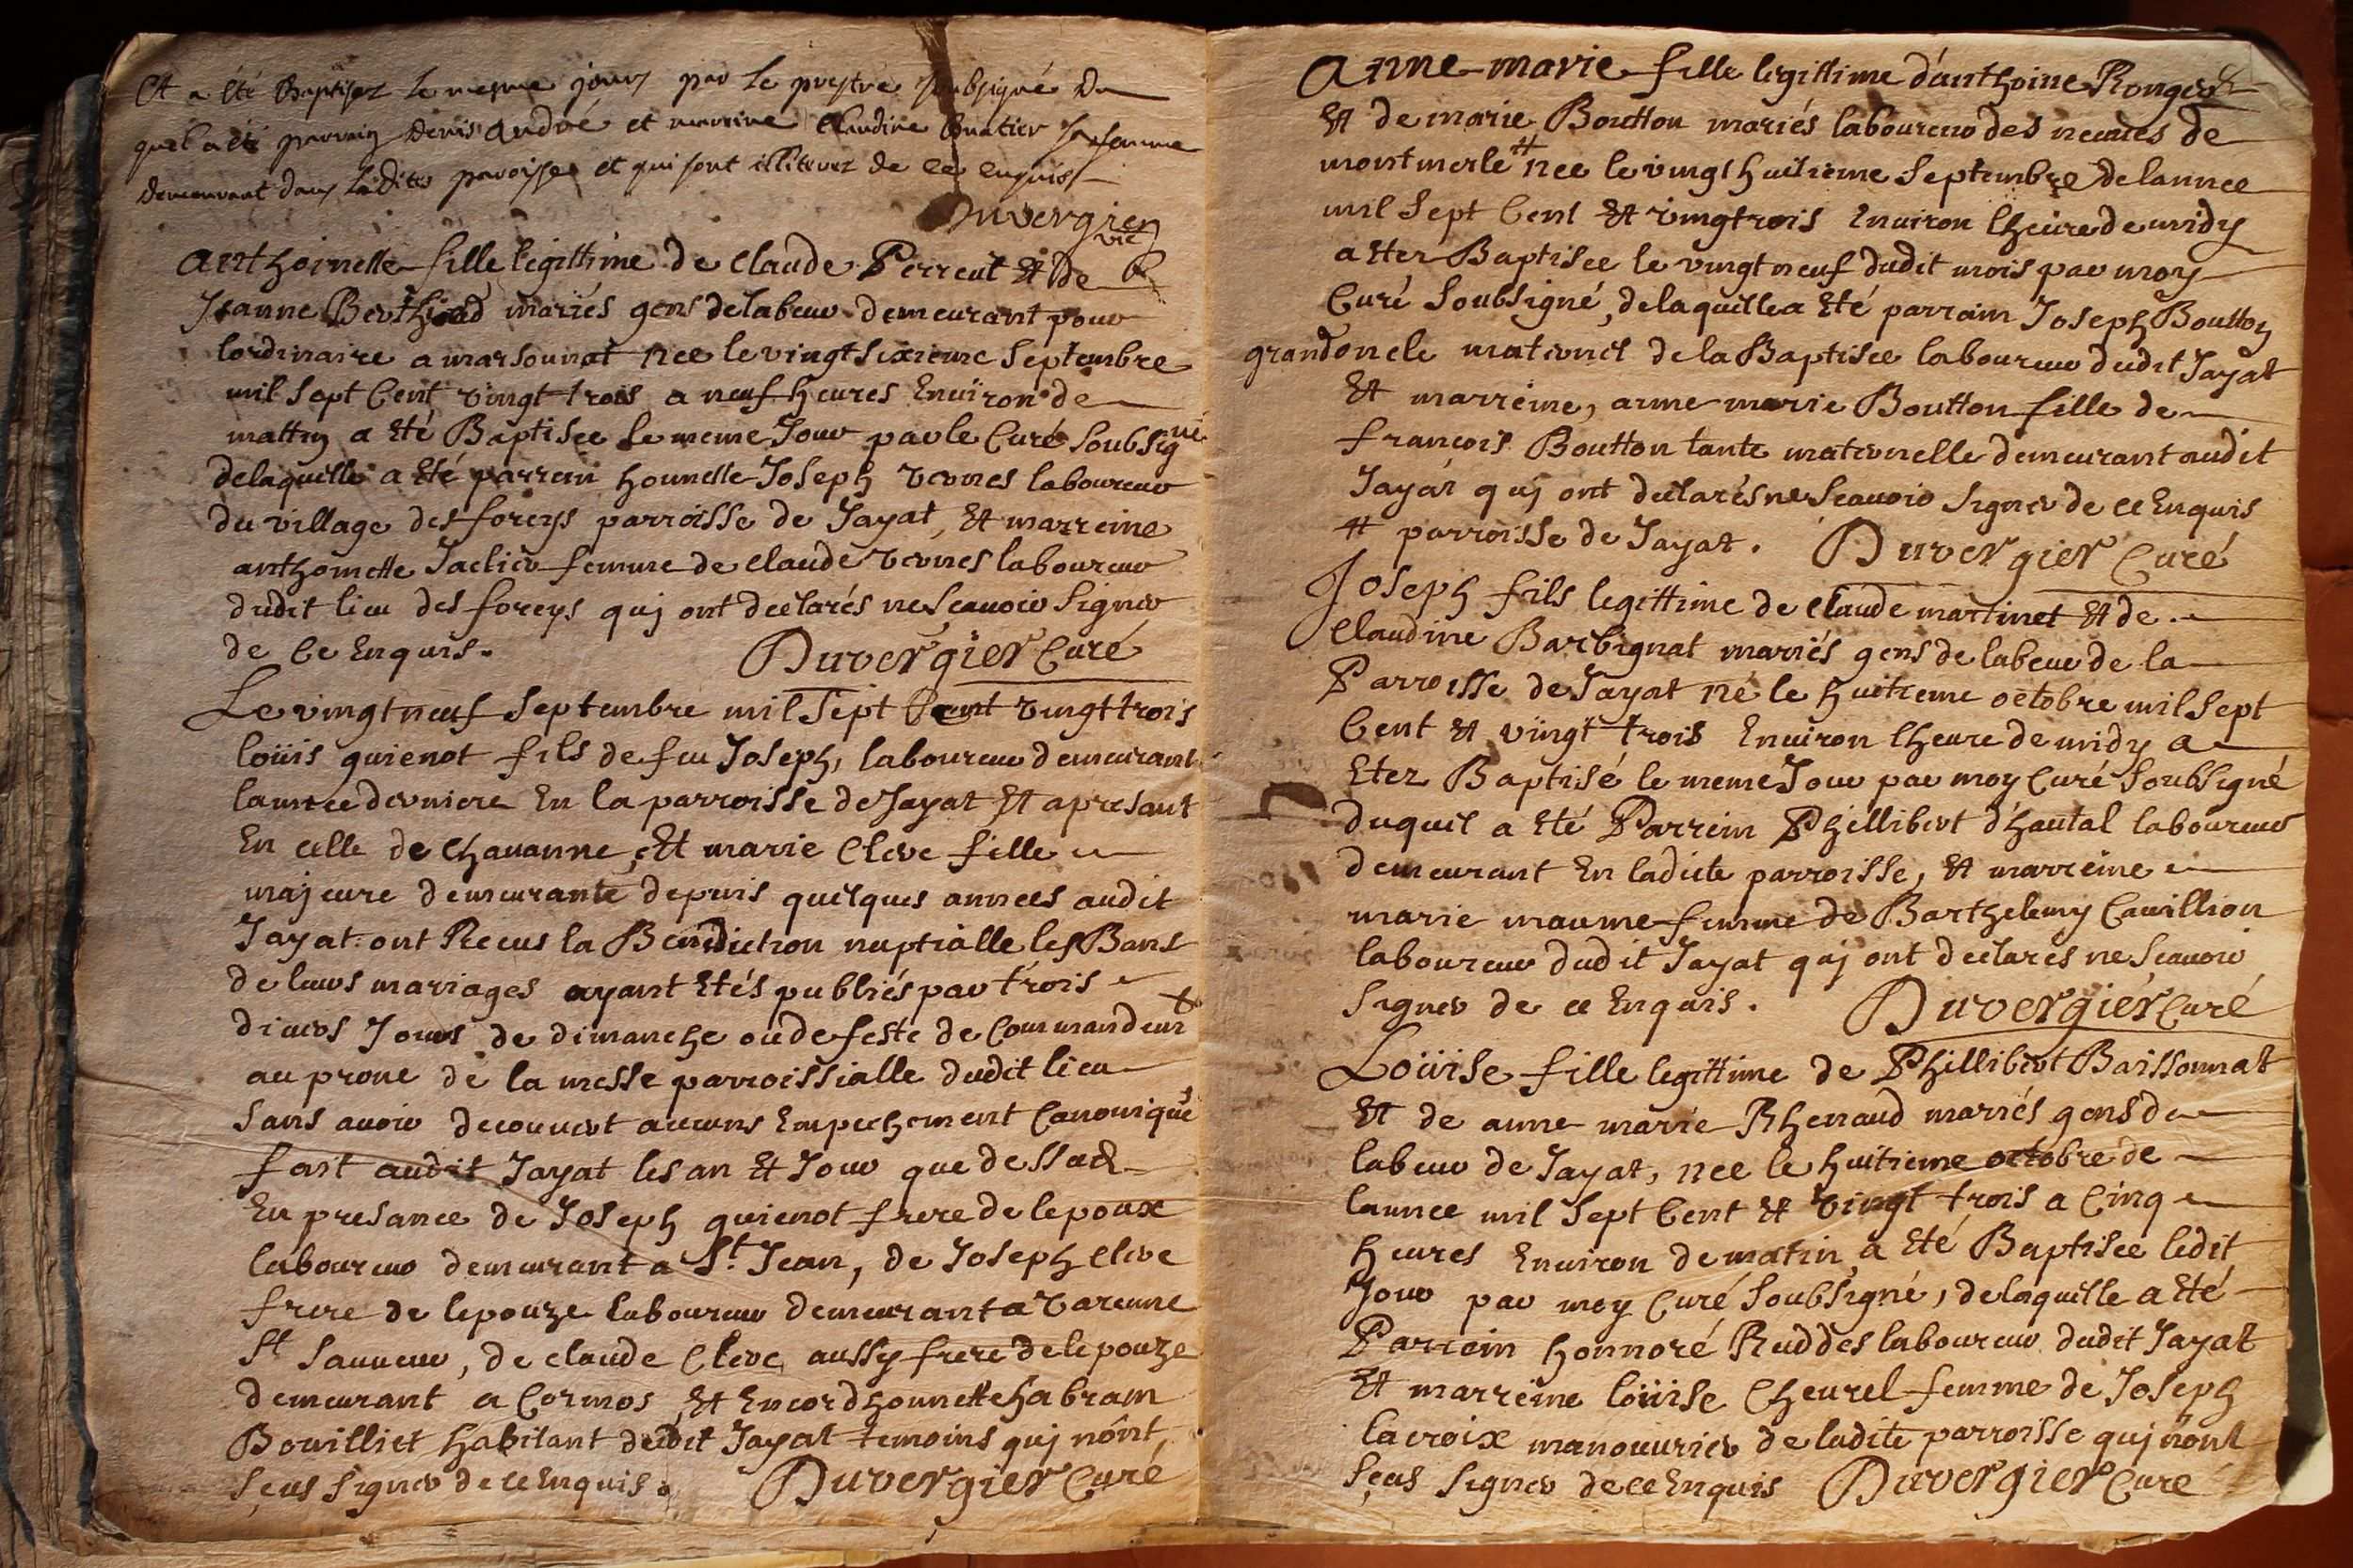 Et a été Baptisez le mesme jour par le prestre soubsigné Du
quel a été parrain denis andré et marrine Claudine buatier sa femme
demeurant dans laditte paroisse et qui sont illiterez de ce enquis
Duvergier
vic
anthoinette fille legittime de claude Perreut Et de
Jeanne Berthoud mariés gens delabeur demeurant pour
lordinaire a marsounat nee le vingt sixieme Septembre
mil Sept Cent vingt trois a neuf heures Environ de
mattin a Eté Baptisee le meme Jour par le Curé Soubsigné
delaquelle a Eté parrein honneste Joseph vernes laboureur
du village des foreys parroisse de Jayat, Et marreine
anthoinette Jaclier femme de claude vernes laboureur
dudit lieu des foreys quj ont declarés ne Scauoir Signer
de Ce Enquis. Duvergier Curé
Le vingt neuf Septembre mil Sept Cent vingt trois
loüis guienot fils de feu Joseph, laboureur demeurant
lannee derniere En la parroisse de Jayat Et apresant
En celle de chauanne, Et marie Cleve fille
majeure demeurante depuis quelques annees audit
Jayat ont Receus la Benediction nuptialle les Bans
de leurs mariages ayant Etés publiés par trois
divers Jours de dimanche ou de feste de Commandemt
au prone de la messe parroissialle dudit lieu
Sans auoir decouvert aucuns Empechement Canonique
fait audit Jayat les an Et Jour que dessus
En presance de Joseph guienot frere de lepoux
laboureur demeurant a St Jean, de Joseph cleve
frere de lepouze laboureur demeurant a varenne
St Sauueur, de claude Cleve aussy frere de lepouze
demeurant a Cormos Et Encor dhonnette habram
Bouilliet habitant dudit Jayat temoins quj nônt
Sçeus Signer de ce Enquis. Duvergier Curé
Anne-marie fille legittime d'anthoine Ronger
Et de marie Boutton mariés laboureur des neuues de
montmerle # nee le vingt huitieme Septembre delannee
mil Sept Cent Et vingtrois Enuiron lheure de midy
a Eter Baptisee le vingt neuf dudit mois par moy
Curé Soubsigné, delaquellea Eté parrain Joseph Boutton
grand oncle maternel de la Baptisee laboureur dudit Jayat
Et marreine, anne marie Boutton fille de
françois Boutton tante maternelle demeurant audit
Jayat quj ont declarés ne Scauoir Signer de ce Enquis
# parroisse de Jayat. Duvergier Curé
Joseph fils legittime de claude martinet Et de
claudine Barbignat mariés gens de labeur de la
Parroisse de Jayat né le huitieme octobre mil Sept
Cent Et vingt trois Enuiron lheure de midy a
Eter Baptisé le meme Jour par moy Curé Soubsigné
duquel a Eté Parrein Phillibert d'hautal laboureur
demeurant En ladite parroisse, Et marreine
marie maume femme de Barthelemy Cauillion
laboureur dudit Jayat quj ont declarés ne Scauoir
Signer de ce Enquis. Duvergier Curé
Loüise fille legittime de Phillibert Baissonnat
Et de anne marie Rhenaud mariés gens de
labeur de Jayat, nee le huitieme octobre de
lannee mil Sept Cent Et vingt trois a Cinq
heures Enuiron de matin a Eté Baptisee ledit
Jour par moy Curé Soubsigné, delaquelle a Eté
Parrein honnoré Ruddes laboureur dudit Jayat
Et marreine loüise Cheurel femme de Joseph
lacroix manouurier de ladite parroisse quj nônt
Sçeus Signer de ce Enquis Duvergier Curé